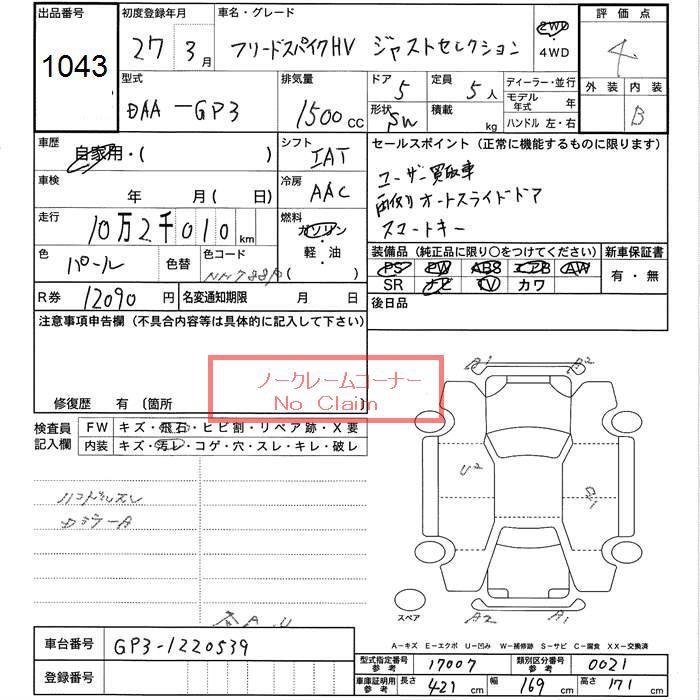 出品番号 初度登録年月 車名・グレード 評価点
1043 27 3月 フリードスパイクHV ジャストセレクション 2WD・4WD 4
型式 排気量 ドア 5 定員 5人 ディーラー・並行 外装 内装
DAA-GP3 1500cc 形状 SW 積載 kg モデル年式 年 B
ハンドル 左・右
車歴 自家用・( ) シフト IAT セールスポイント (正常に機能するものに限ります)
車検 年 月(日) 冷房 AAC ユーザー買取車
走行 10万2千010km 燃料 ガソリン・軽油( ) 両側オートスライドドア
スマートキー
色 パール 色替 色コード NH788P 装備品(純正品に限り○をつけてください) 新車保証書
PS PW ABS エアB AW 有・無
R券 12090円 名変通知期限 月 日 SR ナビ TV カワ
注意事項申告欄(不具合内容等は具体的に記入して下さい) 後日品
ノークレームコーナー
No Claim
修復歴 有(箇所 )
検査員記入欄 FW キズ・飛石・ヒビ割・リペア跡・X要
内装 キズ・汚レ・コゲ・穴・スレ・キレ・破レ
ハンドルスレ
A1 A2
U2
A2 A1
スペア
A-キズ E-エクボ U-凹み W-補修跡 S-サビ C-腐食 XX-交換済
車台番号 GP3-1220539
登録番号
型式指定番号参考 17007 類別区分番号参考 0021
車庫証明用参考 長さ 421cm 幅 169cm 高さ 171cm